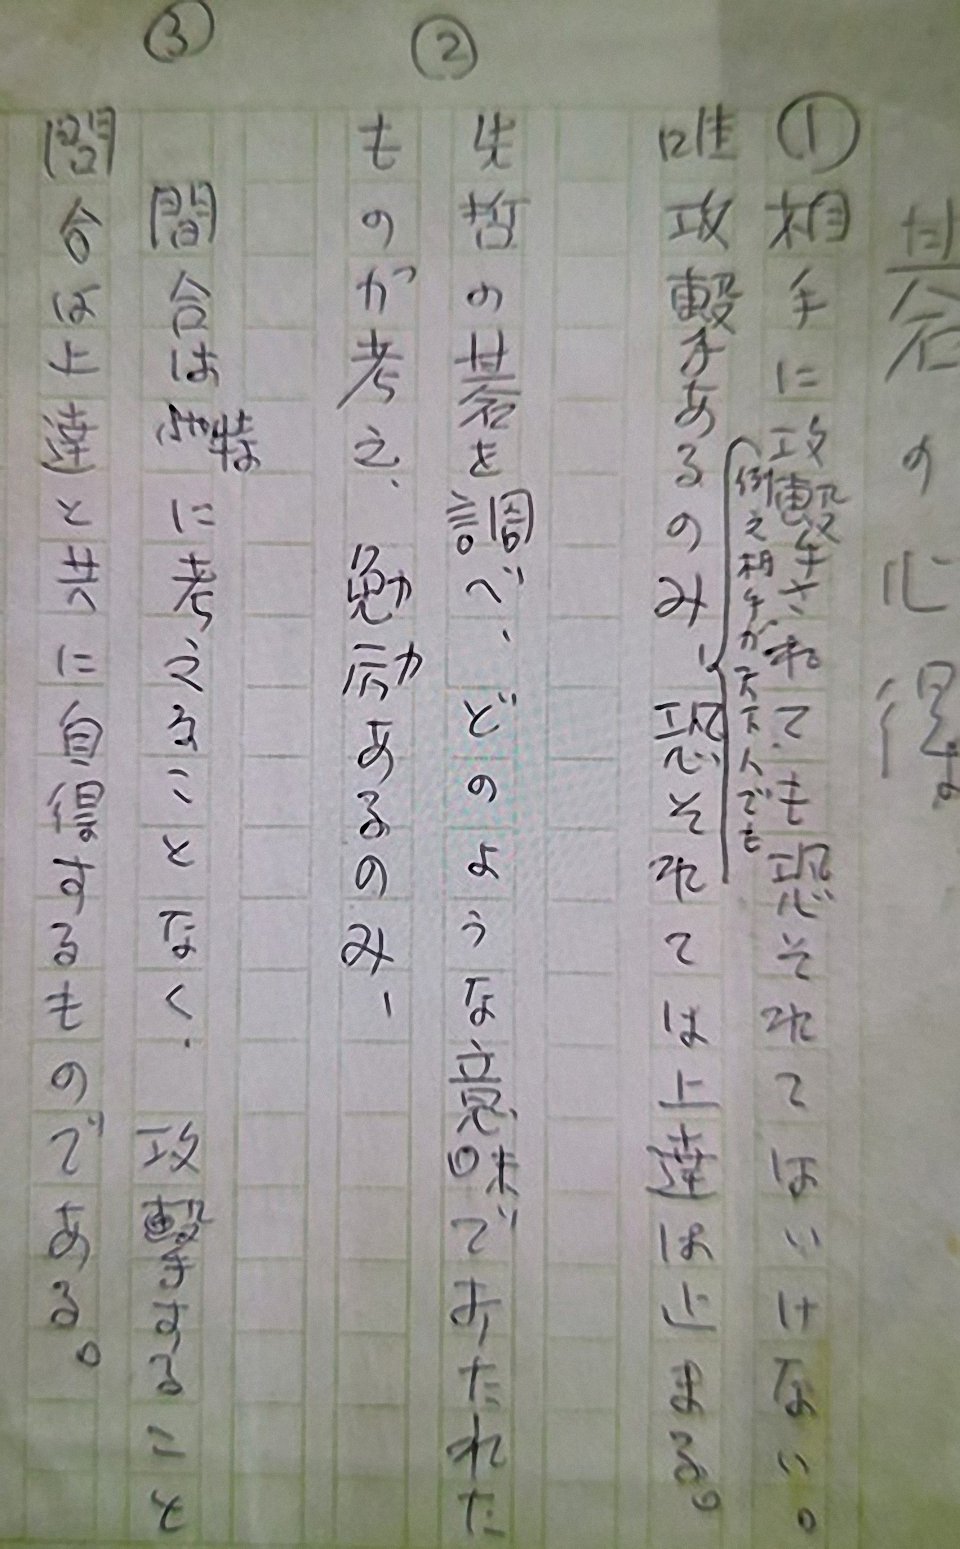 碁の心得
① 相手に攻撃されても恐それてはいけない。
例え相手が天下人でも
唯攻撃あるのみ、恐それては上達は止まる。
② 先哲の碁を調べ、どのような意味でおかれた
ものが考え、勉励あるのみ、
③ 間合は特に考えることなく、攻撃すること
間合は上達と共に自得するものである。